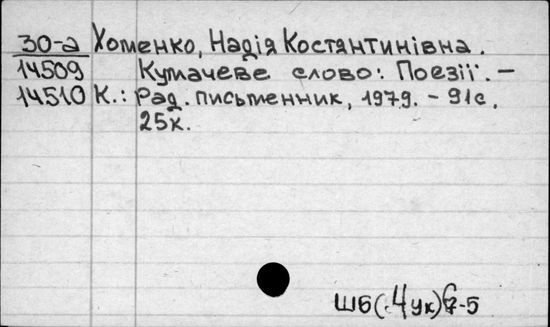 30-а Хоменко, Надія Костянтинівна.
14509 Кумачеве слово: Поезії. –
14510 К.: Рад. письменник, 1979. – 91с.
25к.
Ш6(4Ук)6-5